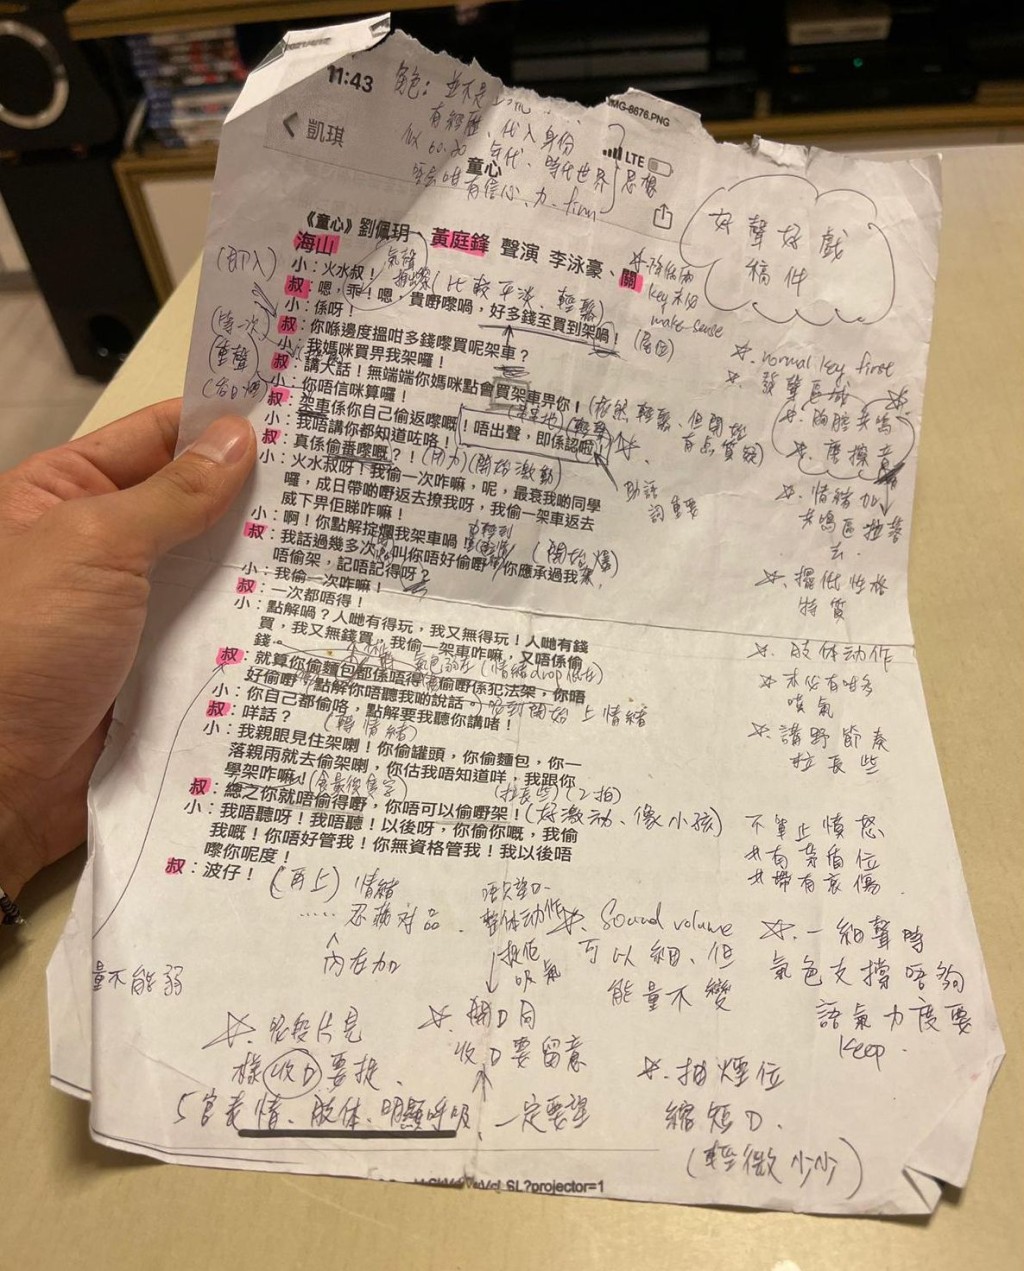 11:43
角色：並不是
IMG-8676.PNG
有經歷、代入身份
凱琪
LTE
以60-70年代、時代世界思想
童心
有信心、力
好聲好戲
稿件
《童心》劉佩玥、黃庭鋒 聲演 李泳豪、關
海山
氣聲
小：火水叔！
(即入)
叔：嗯，乖！嗯，貴嘢嚟喎，好多錢至買到架喎！
(比較平淡、輕鬆)
key
make sense
(尾固)
小：係呀！
叔：你喺邊度搵咁多錢嚟買呢架車？
小：我媽咪買畀我架囉！
重聲
叔：講大話！無端端你媽咪點會買架車畀你！
小：你唔信咪算囉！
(依然輕鬆、但開始有點質疑)
叔：架車係你自己偷返嚟嘅！唔出聲，即係認啦！
小：我唔講你都知道咗咯！
叔：真係偷番嚟嘅？！
(用力)(開始激動)
小：火水叔呀！我偷一次咋嘛，呢，最衰我啲同學
囉，成日帶啲嘢返去撩我呀，我偷一架車返去
威下畀佢睇咋嘛！
助語詞重要
小：啊！你點解掟爛我架車喎！
(開始爆)
叔：我話過幾多次，叫你唔好偷嘢，你應承過我
唔偷架，記唔記得呀？
小：我偷一次咋嘛！
叔：一次都唔得！
小：點解喎？人哋有得玩，我又無得玩！人哋有錢
買，我又無錢買，我偷一架車咋嘛，又唔係偷
錢。
叔：就算你偷麵包都係唔得，偷嘢係犯法架，你唔
(情緒drop低在)
好偷嘢，點解你唔聽我啲說話。
呢到開始上情緒
小：你自己都偷咯，點解要我聽你講啫！
叔：咩話？
(轉情緒)
小：我親眼見住架喇！你偷罐頭，你偷麵包，你一
落親雨就去偷架喇，你估我唔知道咩，我跟你
學架咋嘛！
(食最後隻字)
(拉長些)(2拍)
叔：總之你就唔偷得嘢，你唔可以偷嘢架！
(好激動、像小孩)
小：我唔聽呀！我唔聽！以後呀，你偷你嘅，我偷
我嘅！你唔好管我！你無資格管我！我以後唔
嚟你呢度！
叔：波仔！
(再上)情緒
……忍痛對品
內在加
normal key first
發聲區域
胸腔共鳴
磨擦音
情緒加
共鳴區拉落去
攞低性格特質
肢体动作
未必有咁多
嘆氣
講野節奏
拉長些
不單止憤怒
共有矛盾位
共帶有哀傷.
整体动作
吸氣
Sound volume
可以細、但
能量不變
一細聲時
氣色支撐唔夠
語氣力度要
keep.
量不能弱
樣收口要捉.
開口同
收口要留意
抽煙位
縮短口.
(輕微少少)
5官表情、肢体、明顯呼吸、一定要望
SL?projector=1